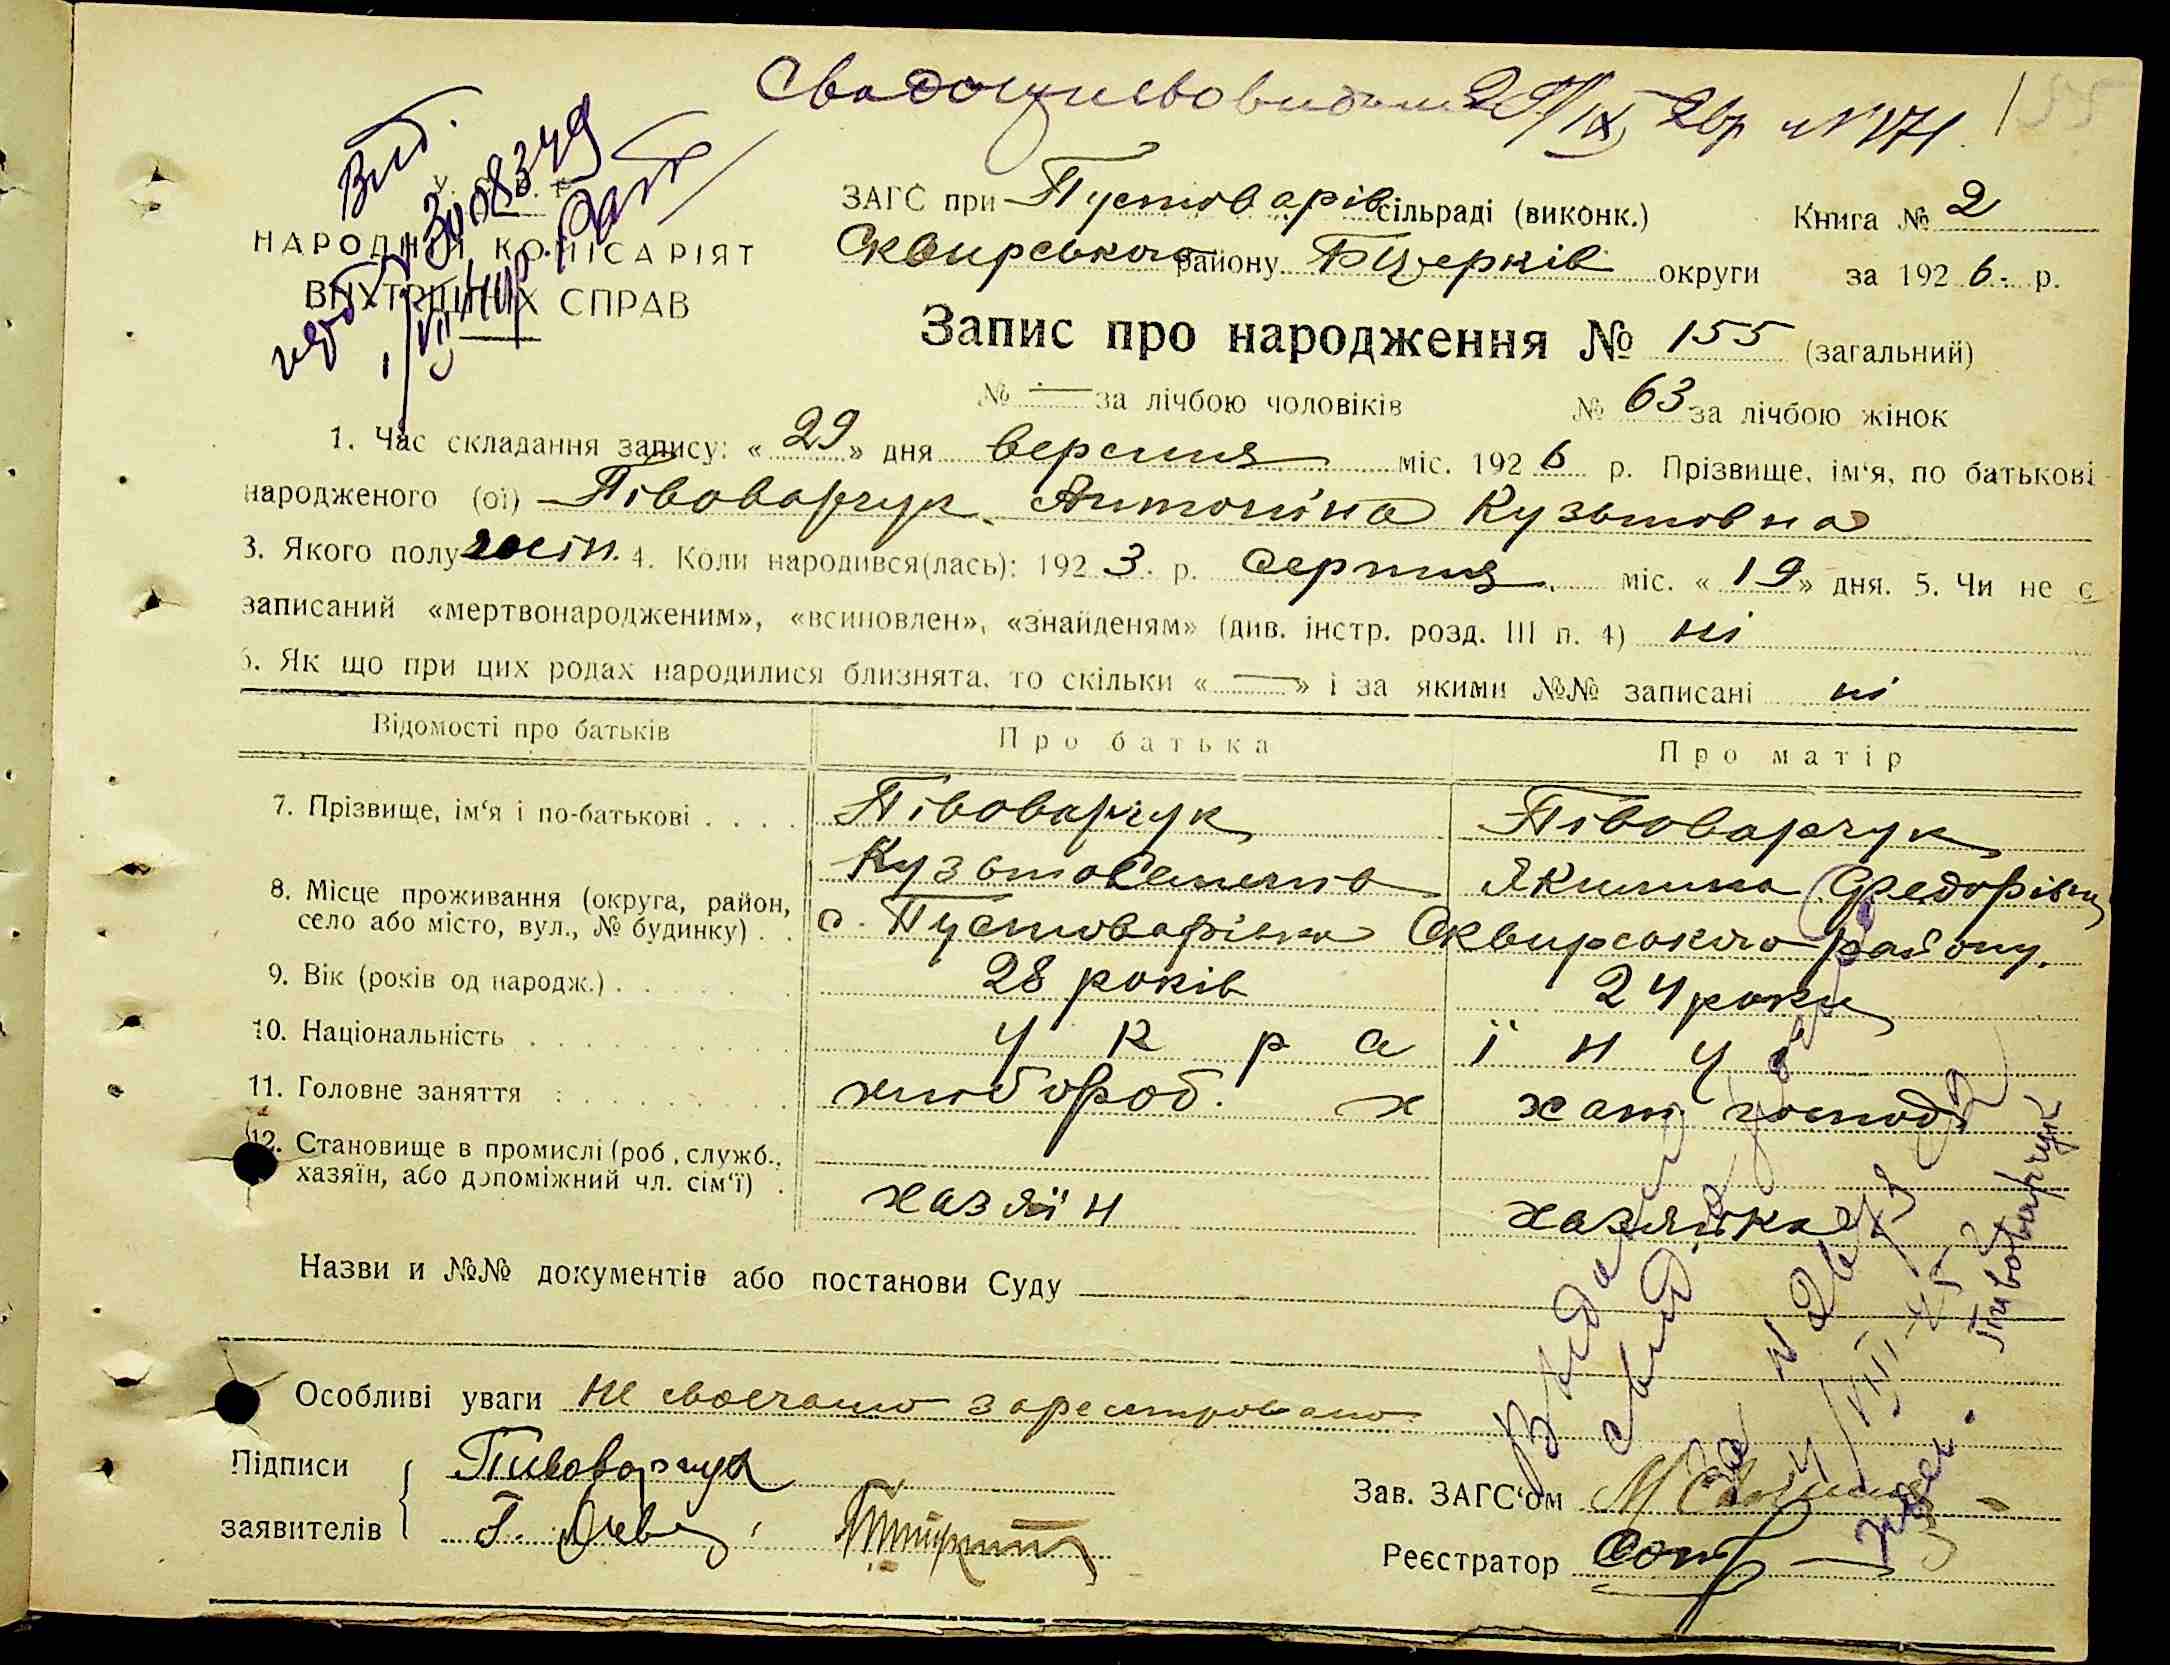 Свидоцтво видано 29/IX 26р №171
155
Вид.
У. С. Р. Р.
НАРОДНІЙ КОМІСАРІЯТ
ВНУТРІШНІХ СПРАВ
ЗАГС при Пустоварів сільраді (виконк.) Книга № 2
Сквирського району БЦерків округи за 1926 р.
Запис про народження № 155 (загальний)
№ — за лічбою чоловіків № 63 за лічбою жінок
1. Час складання запису: «29» дня вересння міс. 1926 р. Прізвище, ім'я, по батькові
народженого (ої) Півоварчук Антоніна Кузьмовна
3. Якого полу жін. 4. Коли народився(лась): 1923 р. Серпня міс. «19» дня. 5. Чи не є
записаний «мертвонародженим», «всиновлен», «знайденям» (див. інстр. розд. III п. 4) ні
6. Як що при цих родах народилися близнята, то скільки «—» і за якими №№ записані ні
Відомості про батьків Про батька Про матір
7. Прізвище, ім'я і по-батькові Півоварчук Півоварчук
Кузьма Якилина Федорівна
8. Місце проживання (округа, район, село або місто, вул., № будинку) с. Пустоварівка Сквирського району.
9. Вік (років од народж.) 28 років 24 роки
10. Національність україн ц і
11. Головне заняття хлібороб. х хат господ
12. Становище в промислі (роб., служб., хазяїн, або допоміжний чл. сім'ї) хазяїн хазяйка
Назви и №№ документів або постанови Суду
Особливі уваги Не своєчасно зареєстровано
Підписи заявителів Пивоварчук
Зав. ЗАГС'ом
Реєстратор
Видано
свид
Пивоварчук